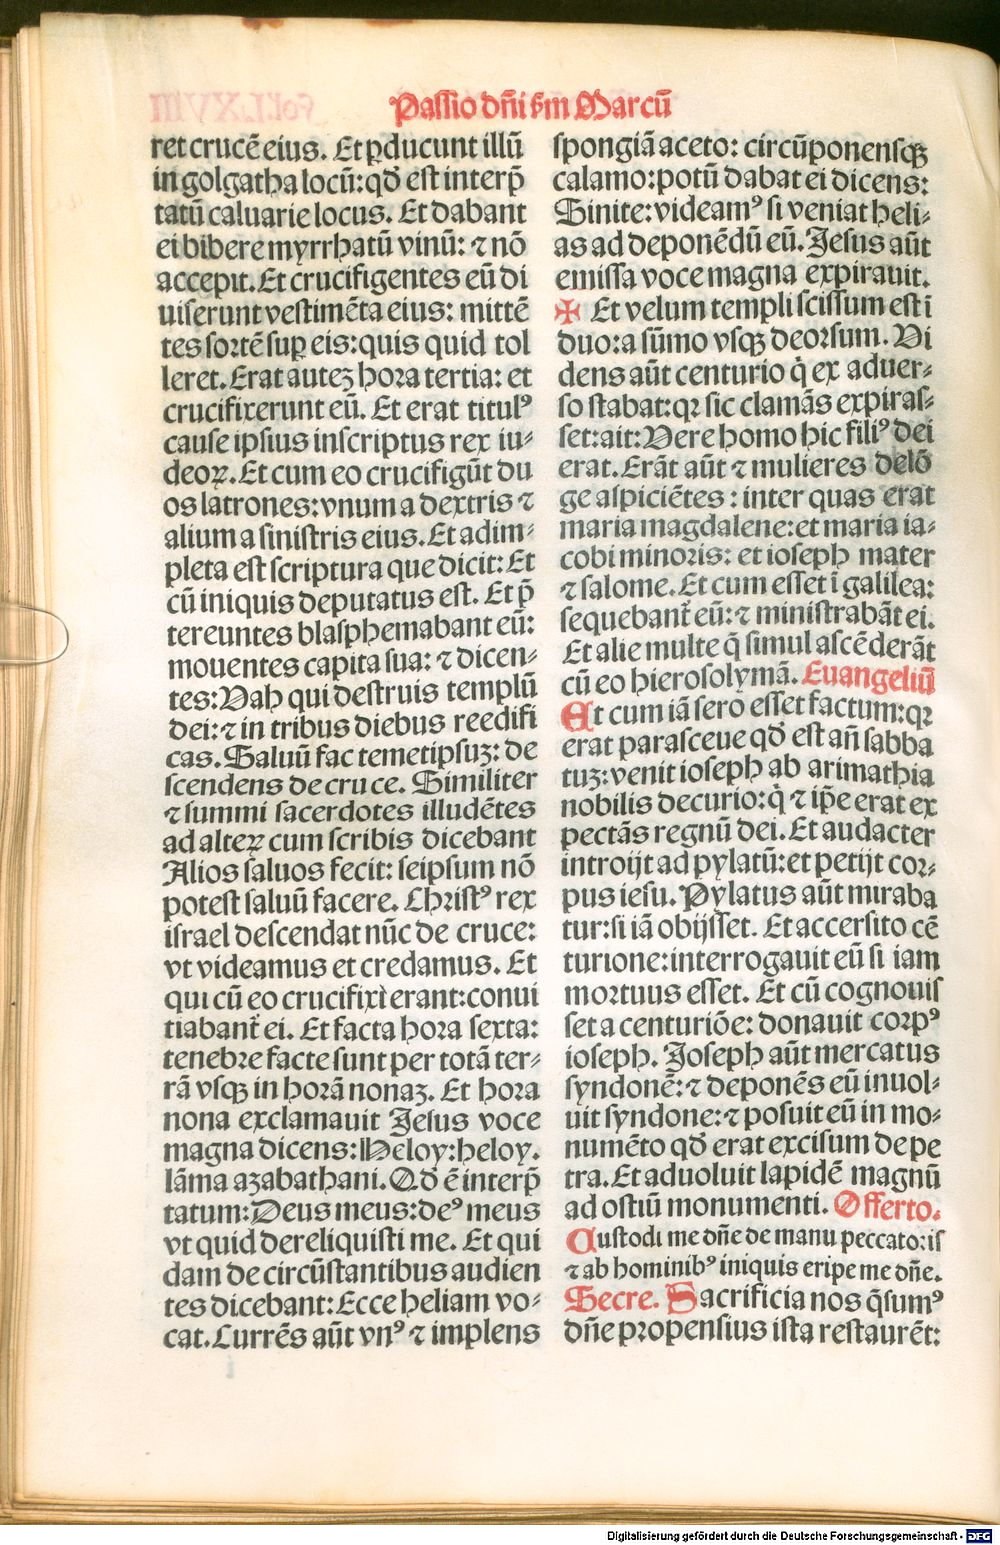 Passio dñi ẜm Marcū
ret crucē eius. Et ꝑducunt illū
in golgatha locū: qđ est interp̄
tatū caluarie locus. Et dabant
ei bibere myrrhatū vinū: ⁊ nō
accepit. Et crucifigentes eū di
uiserunt vestimēta eius: mittē
tes sortē suꝑ eis: quis quid tol
leret. Erat auteꝫ hora tertia: et
crucifixerunt eū. Et erat titulꝰ
cause ipsius inscriptus rex iu⸗
deoꝝ. Et cum eo crucifigūt du
os latrones: vnum a dextris ⁊
alium a sinistris eius. Et adim⸗
pleta est scriptura que dicit: Et
cū iniquis deputatus est. Et p̄
tereuntes blasphemabant eū:
mouentes capita sua: ⁊ dicen⸗
tes: Vah qui destruis templū
dei: ⁊ in tribus diebus reedifi
cas. Saluū fac temetipsuꝫ: de
scendens de cruce. Similiter
⁊ summi sacerdotes illudētes
ad alteꝝ cum scribis dicebant
Alios saluos fecit: seipsum nō
potest saluū facere. Christꝰ rex
israel descendat nūc de cruce:
vt videamus et credamus. Et
qui cū eo crucifixi erant: conui
tiabant᷑ ei. Et facta hora sexta:
tenebre facte sunt per totā ter⸗
rā vsqꝫ in horā nonaꝫ. Et hora
nona exclamauit Jesus voce
magna dicens: Heloy: heloy.
lāma azabathani. Qđ ē interp̄
tatum: Deus meus: deꝰ meus
vt quid dereliquisti me. Et qui
dam de circūstantibus audien
tes dicebant: Ecce heliam vo⸗
cat. Currēs aūt vnꝰ ⁊ implens
spongiā aceto: circūponensqꝫ
calamo: potū dabat ei dicens:
Sinite: videamꝰ si veniat heli⸗
as ad deponēdū eū. Jesus aūt
emissa voce magna expirauit.
✠ Et velum templi scissum est ī
duo: a sūmo vsqꝫ deorsum. Vi
dens aūt centurio q̇ ex aduer⸗
so stabat: qꝛ sic clamās expiras⸗
set: ait: Vere homo hic filiꝰ dei
erat. Erāt aūt ⁊ mulieres delō
ge aspiciētes: inter quas erat
maria magdalene: et maria ia⸗
cobi minoris: et ioseph mater
⁊ salome. Et cum esset ī galilea:
sequebant᷑ eū: ⁊ ministrabāt ei.
Et alie multe q̄ simul ascēderāt
cū eo hierosolymā. Euangeliū
Et cum iā sero esset factum: qꝛ
erat parasceue qđ est añ sabba
tuꝫ: venit ioseph ab arimathia
nobilis decurio: q̇ ⁊ ip̄e erat ex
pectās regnū dei. Et audacter
introijt ad pylatū: et petijt cor⸗
pus iesu. Pylatus aūt miraba
tur: si iā obijsset. Et accersito cē
turione: interrogauit eū si iam
mortuus esset. Et cū cognouis
set a centuriōe: donauit corpꝰ
ioseph. Joseph aūt mercatus
syndonē: ⁊ deponēs eū inuol⸗
uit syndone: ⁊ posuit eū in mo⸗
numēto qđ erat excisum de pe
tra. Et aduoluit lapidē magnū
ad ostiū monumenti. Offerto.
Custodi me dñe de manu peccatoris
⁊ ab hominibꝰ iniquis eripe me dñe.
Secre. Sacrificia nos q̄sumꝰ
dñe propensius ista restaurēt:
Digitalisierung gefördert durch die Deutsche Forschungsgemeinschaft - DFG